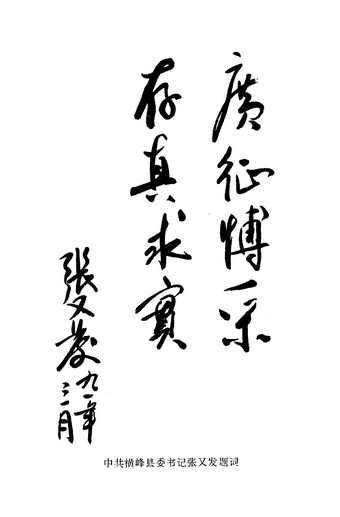 廣征博采
存真求實
張又發
九一年
三月
中共横峰县委书记张又发题词